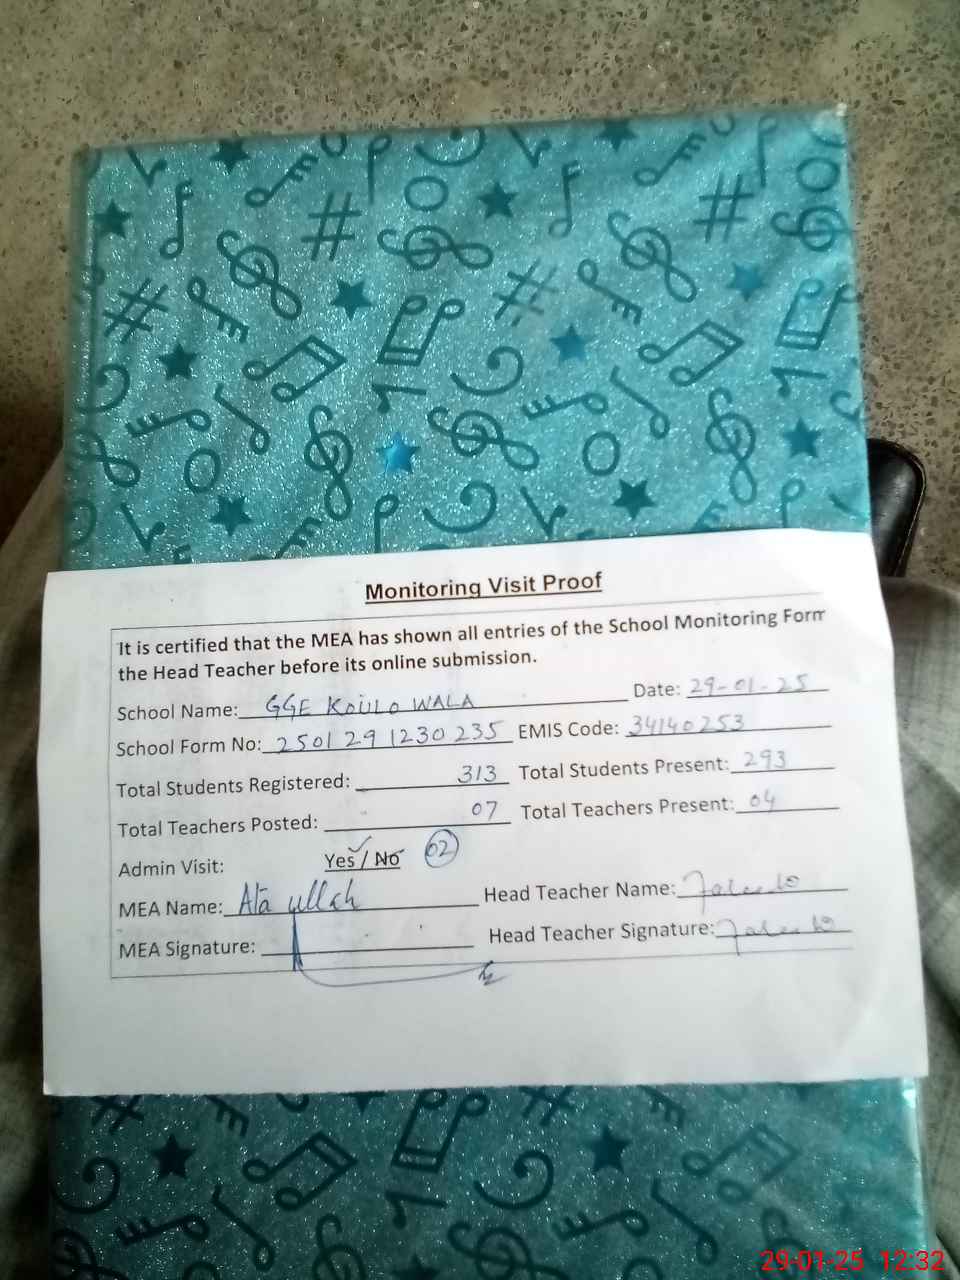 Monitoring Visit Proof
It is certified that the MEA has shown all entries of the School Monitoring Form
the Head Teacher before its online submission.
School Name: GGE KOULO WALA Date: 29-01-25
School Form No: 2501291230235 EMIS Code: 34140253
Total Students Registered: 313 Total Students Present: 293
Total Teachers Posted: 07 Total Teachers Present: 04
Admin Visit: Yes / No 02
MEA Name: Ata ullah Head Teacher Name:
MEA Signature: Head Teacher Signature:
29-01-25 12:32